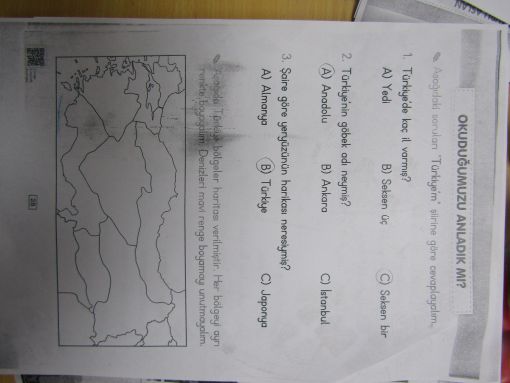 OKUDUĞUMUZU ANLADIK MI?
Aşağıdaki soruları "Türkiyem" şiirine göre cevaplayalım.
1. Türkiye'de kaç il varmış?
A) Yedi B) Seksen üç C) Seksen bir
2. Türkiye'nin göbek adı neymiş?
A) Anadolu B) Ankara C) İstanbul
3. Şaire göre yeryüzünün harikası neresiymiş?
A) Almanya B) Türkiye C) Japonya
Türkiye bölgeler haritası verilmiştir. Her bölgeyi ayrı
renkte boyayalım. Denizleri mavi renge boyamayı unutmayalım.